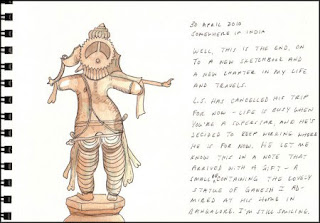 30 APRIL 2010
SOMEWHERE IN INDIA
WELL, THIS IS THE END, ON
TO A NEW SKETCHBOOK AND
A NEW CHAPTER IN MY LIFE
AND TRAVELS.
L.S. HAS CANCELLED HIS TRIP
FOR NOW - LIFE IS BUSY WHEN
YOU'RE A SUPERSTAR, AND HE'S
DECIDED TO KEEP WORKING WHERE
HE IS FOR NOW. HE LET ME
KNOW THIS IN A NOTE THAT
ARRIVED WITH A GIFT - A
SMALL CONTAINING THE LOVELY
STATUE OF GANESH I AD-
MIRED AT HIS HOME IN
BANGALORE. I'M STILL SMILING.